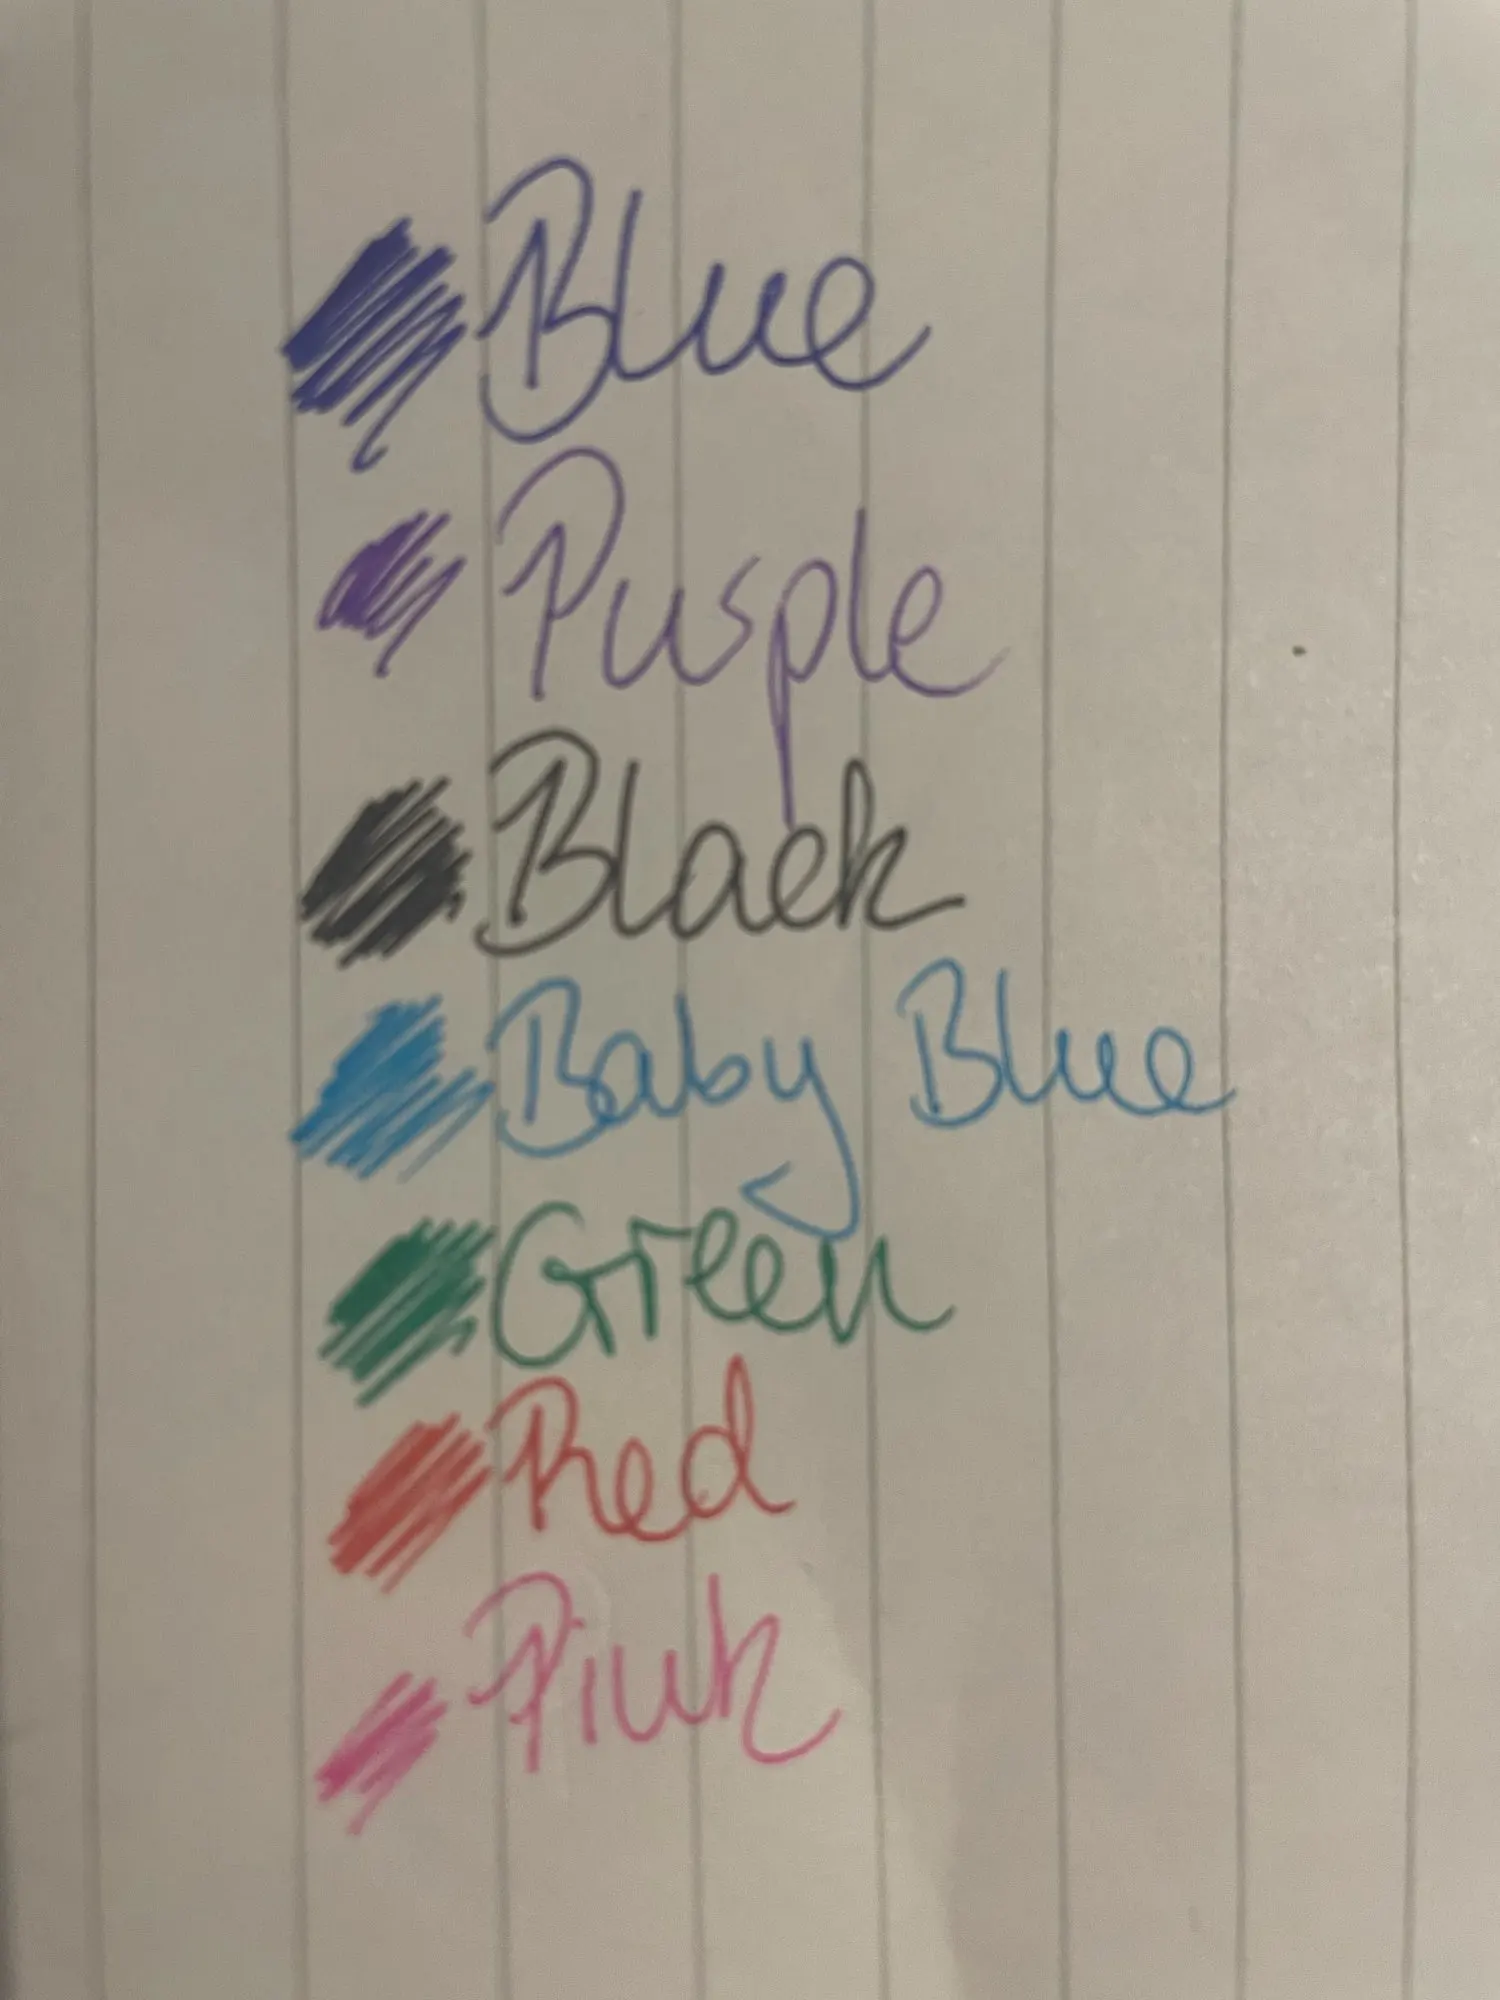 Blue
Purple
Black
Baby Blue
Green
Red
Pink